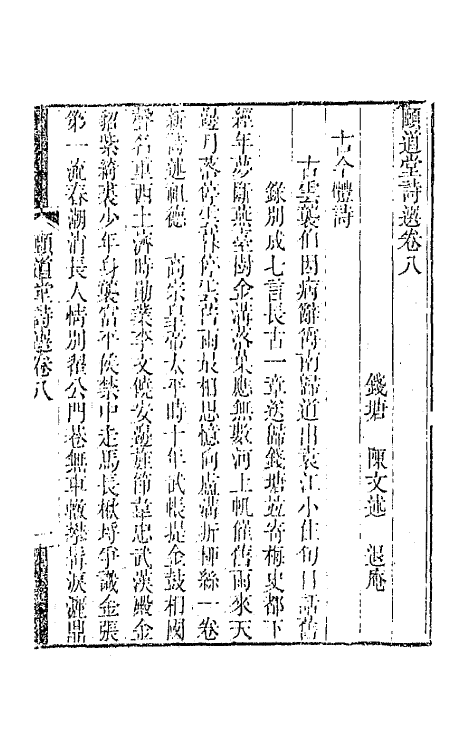 頤道堂詩選卷八
錢塘 陳文述 退庵
古今體詩
古雲襲伯因病辭爵南歸道出袁江小住旬日話舊
錄別成七言長古一章送歸錢塘並寄梅史都下
經年夢斷燕臺樹金溝落葉應無數河上帆催舊雨來天
邊月落停雲暮停雲舊雨最相思憶向盧溝折柳絲一卷
新詩述祖德 高宗皇帝太平時十年武帳提金鼓相國
聲名車西土濟時勛業李文饒安邊旌節韋忠武漢殿金
貂紫綺裘少年身襲富平侯禁中走馬長楸埒爭識金張
第一流春潮消長人情別翟公門巷無車轍攀髯淚灑鼎
頤道堂詩選卷八
一